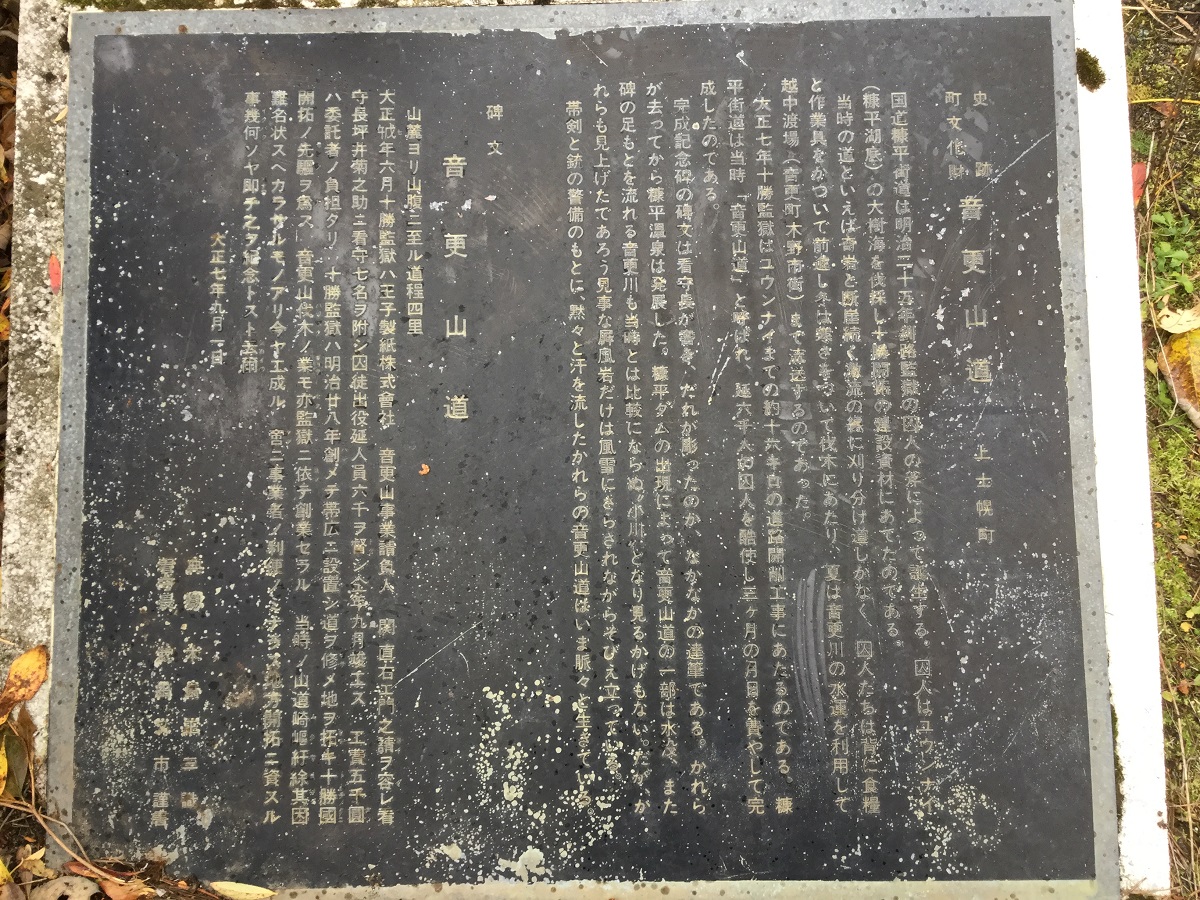 史跡
町文化財
音更山道 上士幌町
国道糠平街道は明治二十五年釧路監獄の囚人の斧によって誕生する。囚人はユウンナイ
(糠平湖底)の大樹海を伐採し十勝監獄の建設資材にあてたのである。
当時の道といえば奇岩と断崖続く激流の際に刈り分け道しかなく、囚人たちは背に食糧
と作業具をかついで前進し冬は寒さをついて伐木にあたり、夏は音更川の水運を利用して
越中渡場(音更町木野市街)まで流送するのであった。
大正七年十勝監獄はユウンナイまでの約十六キロの道路開削工事にあたるのである。糠
平街道は当時、「音更山道」と呼ばれ、延六千人の囚人を酷使し三ヶ月の月日を費やして完
成したのである。
完成記念碑の碑文は看守長が書き、だれが彫ったのか、なかなかの達筆である。かれら
が去ってから糠平温泉は発展した。糠平ダムの出現によって音更山道の一部は水没、また
碑の足もとを流れる音更川も当時とは比較にならぬ小川となり見るかげもないが、か
れらも見上げたであろう見事な屏風岩だけは風雪にさらされながらそびえ立っている。
帯剣と銃の警備のもとに、黙々と汗を流したかれらの音更山道はいま脈々と生きている。
碑文
音更山道
山麓ヨリ山腹ニ至ル道程四里
大正戊年六月十勝監獄ハ王子製紙株式會社 音更山事業請負人 関直右エ門之請ヲ容レ看
守長坪井菊之助ニ看守七名ヲ附シ囚徒出役延人員六千ヲ督シ仝年九月竣工ス 工費五千圓
ハ委託者ノ負担タリ 十勝監獄ハ明治廿八年創メテ帯広ニ設置シ道ヲ修メ地ヲ拓キ十勝國
開拓ノ先驅ヲ為ス 音更山伐木ノ業モ亦監獄ニ依テ創業セラル 当時ノ山道崎嶇紆絵其困
難名状スヘカラサルモノアリ今ヤ工成ル 啻ニ事業者ノ利便ノミナラス地方開拓ニ資スル
事幾何ソヤ即チ之ヲ紀念トスト云爾
大正七年九月一日
市謹書